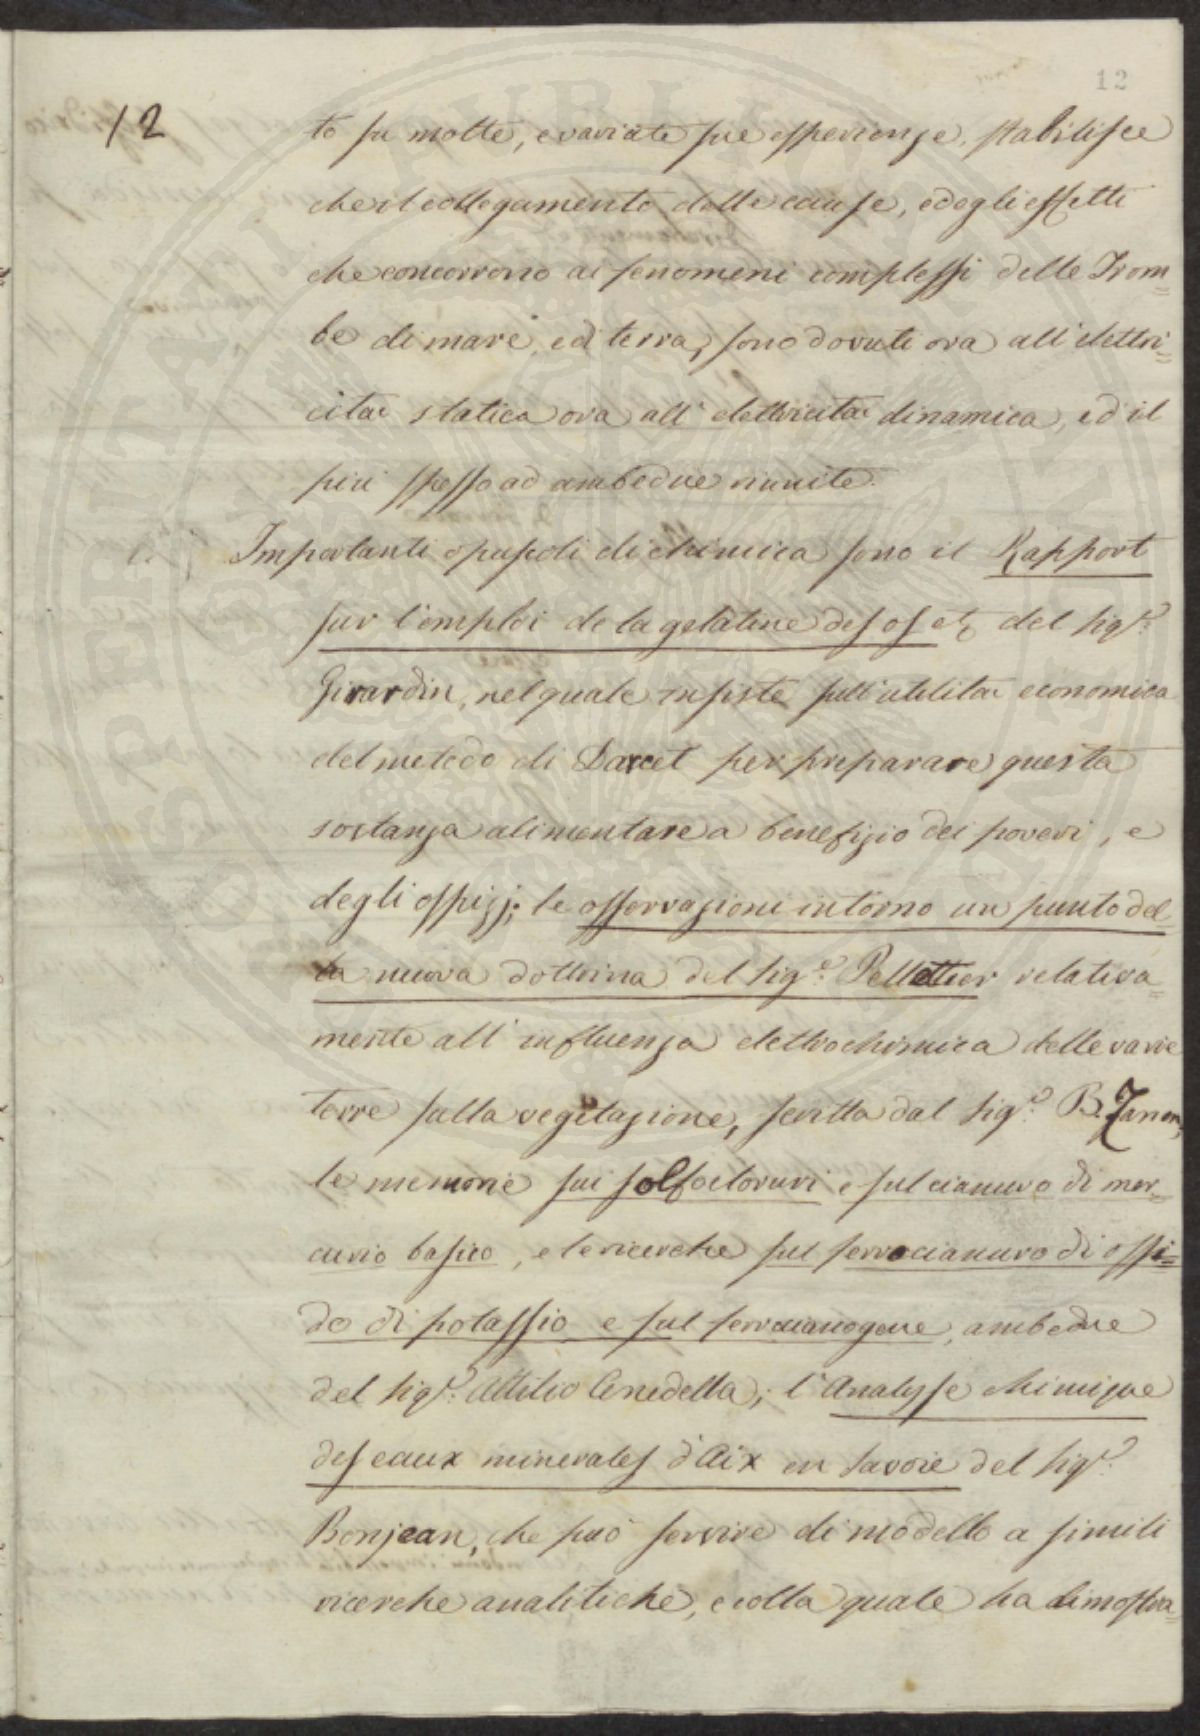 12
12
to su molte, e variate sue esperienze, stabilisce
che il collegamento delle cause, e degli effetti
che concorrono ai fenomeni complessi delle Trom=
be di mare, e di terra, sono dovuti ora all'elettri=
cità statica ora all'elettricità dinamica, ed il
più spesso ad ambedue riunite.
Importanti opuscoli di chimica sono il Rapport
sur l'emploi de la gelatine des os etc del Sigr.
Girardin, nel quale insiste sull'utilità economica
del metodo di Darcet per preparare questa
sostanza alimentare a benefizio dei poveri, e
degli ospizj; le osservazioni intorno un punto del=
la nuova dottrina del Sigr. Pelletier relativa=
mente all'influenza elettrochimica delle varie
terre sulla vegetazione, scritta dal Sigr. B. Zanon,
le memorie sui solfocloruri e sul cianuro di mer=
curio basico, e le ricerche sul ferrocianuro di ossi=
do di potassio e sul ferrocianogene, ambedue
del Sigr. Attilio Cenedella; l'Analyse chimique
des eaux minerales d'Aix en Savoie del Sigr.
Bonjean, che può servire di modello a simili
ricerche analitiche, e colla quale ha dimostra=
PROSPERITATI PUBLICAE